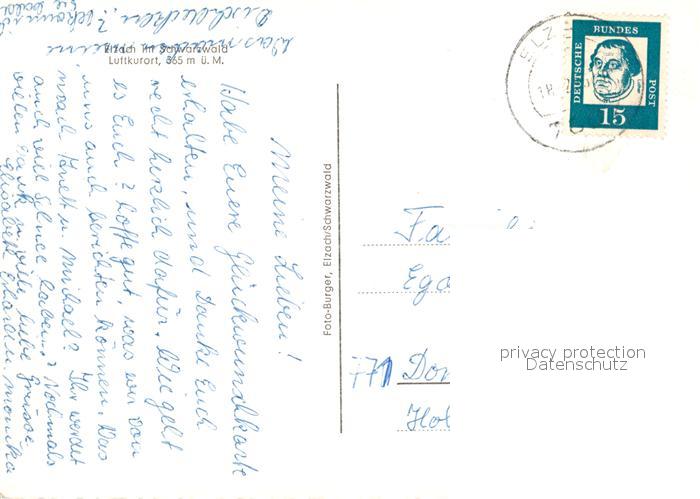 Elzach im Schwarzwald
Luftkurort, 365 m ü. M.
Meine Lieben!
Habe Euere Glückwunschkarte
erhalten, und danke Euch
recht herzlich dafür. Wie geht
es Euch? Hoffe gut, was wir von
uns auch berichten können. Das
macht u. Michael? Ihr werdet
auch viel Schnee haben? Nochmals
vielen Dank u. viele liebe Grüsse
Elisabeth Erhardin Monika
Foto-Burger, Elzach/Schwarzwald
ELZ
18.
DEUTSCHE
BUNDES
POST
15
Fa
Ega
771 Don
Hol
privacy protection
Datenschutz